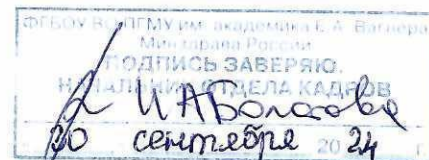 ФГБОУ ВО ПГМУ им. академика Е.А. Вагнера
Минздрава России
ПОДПИСЬ ЗАВЕРЯЮ.
НАЧАЛЬНИК ОТДЕЛА КАДРОВ
И.А.Болотова
30 сентября 2024 г.